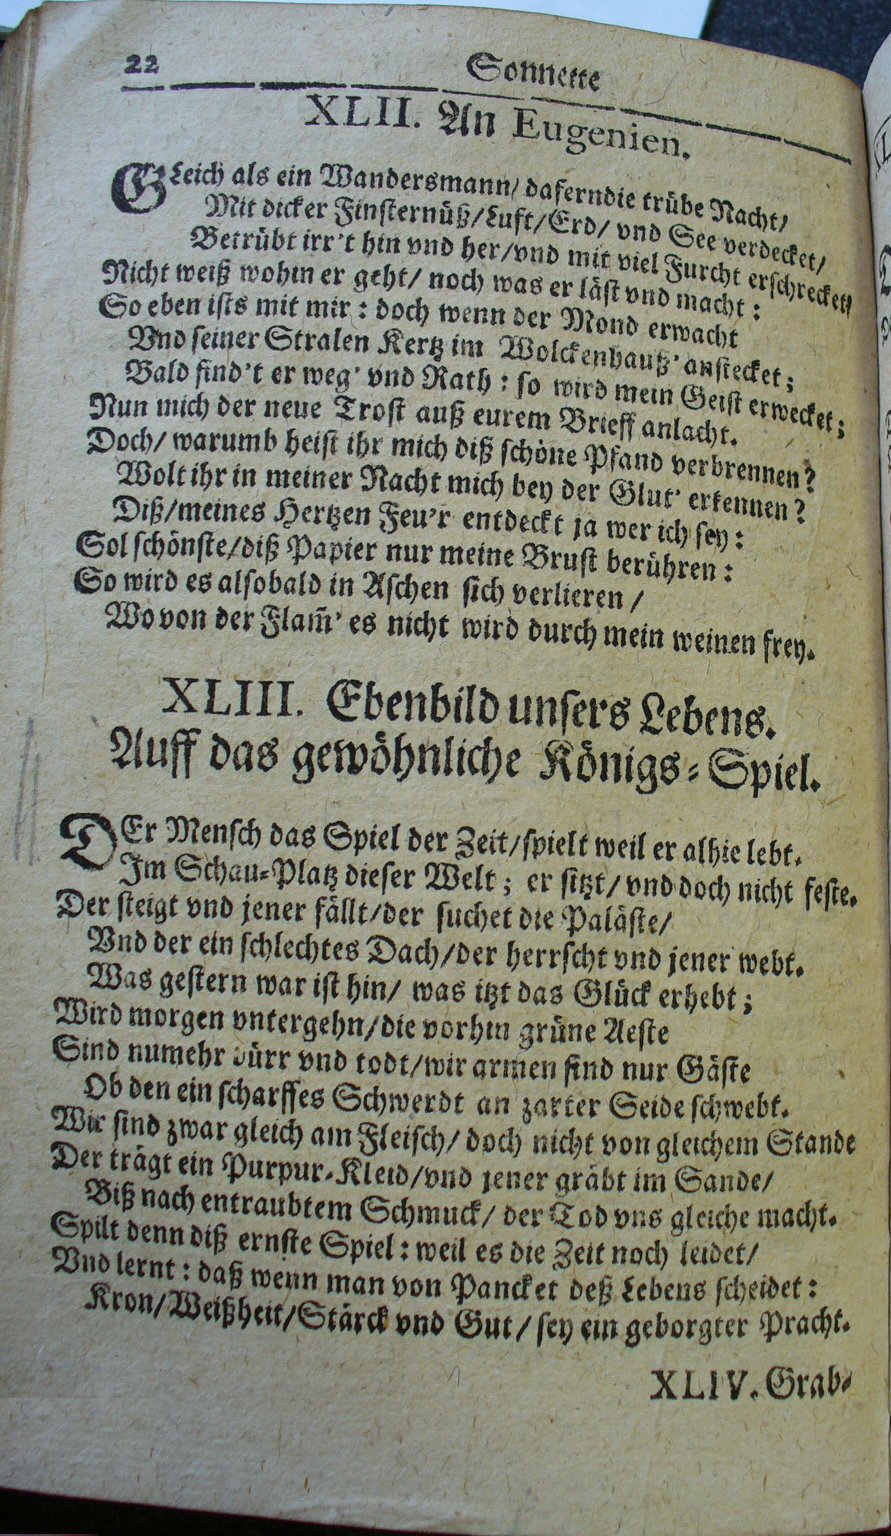 22 Sonnette
XLII. An Eugenien.
GLeich als ein Wandersmann/ dafern die trübe Nacht/
Mit dicker Finsternüß/ Luft/ Erd/ vnd See verdecket/
Betrübt irr't hin vnd her/ vnd mit viel Furcht erschrecket/
Nicht weiß wohin er geht/ noch was er läst vnd macht:
So eben ists mit mir: doch wenn der Mond erwacht
Vnd seiner Stralen Kertz im Wolckenhauß' anstecket;
Bald find't er weg' vnd Rath: so wird mein Geist erwecket;
Nun mich der neue Trost auß eurem Brieff anlacht.
Doch/ warumb heist ihr mich diß schöne Pfand verbrennen?
Wolt ihr in meiner Nacht mich bey der Glut' erkennen?
Diß/ meines Hertzen Feu'r entdeckt ja wer ich sey:
Sol schönste/ diß Papier nur meine Brust berühren:
So wird es alsobald in Aschen sich verlieren/
Wo von der Flam̃' es nicht wird durch mein weinen frey.
XLIII. Ebenbild unsers Lebens.
Auff das gewöhnliche Königs-Spiel.
DEr Mensch das Spiel der Zeit/ spielt weil er alhie lebt.
Im Schau-Platz dieser Welt; er sitzt/ vnd doch nicht feste.
Der steigt vnd jener fällt/ der suchet die Paläste/
Vnd der ein schlechtes Dach/ der herrscht vnd jener webt.
Was gestern war ist hin/ was itzt das Glück erhebt;
Wird morgen vntergehn/ die vorhin grüne Aeste
Sind numehr dürr vnd todt/ wir armen sind nur Gäste
Ob den ein scharffes Schwerdt an zarter Seide schwebt.
Wir sind zwar gleich am Fleisch/ doch nicht von gleichem Stande
Der trägt ein Purpur-Kleid/ vnd jener gräbt im Sande/
Biß nach entraubtem Schmuck/ der Tod vns gleiche macht.
Spilt denn diß ernste Spiel: weil es die Zeit noch leidet/
Vnd lernt: daß wenn man von Pancket deß Lebens scheidet:
Kron/ Weißheit/ Stärck vnd Gut/ sey ein geborgter Pracht.
XLIV. Grab-